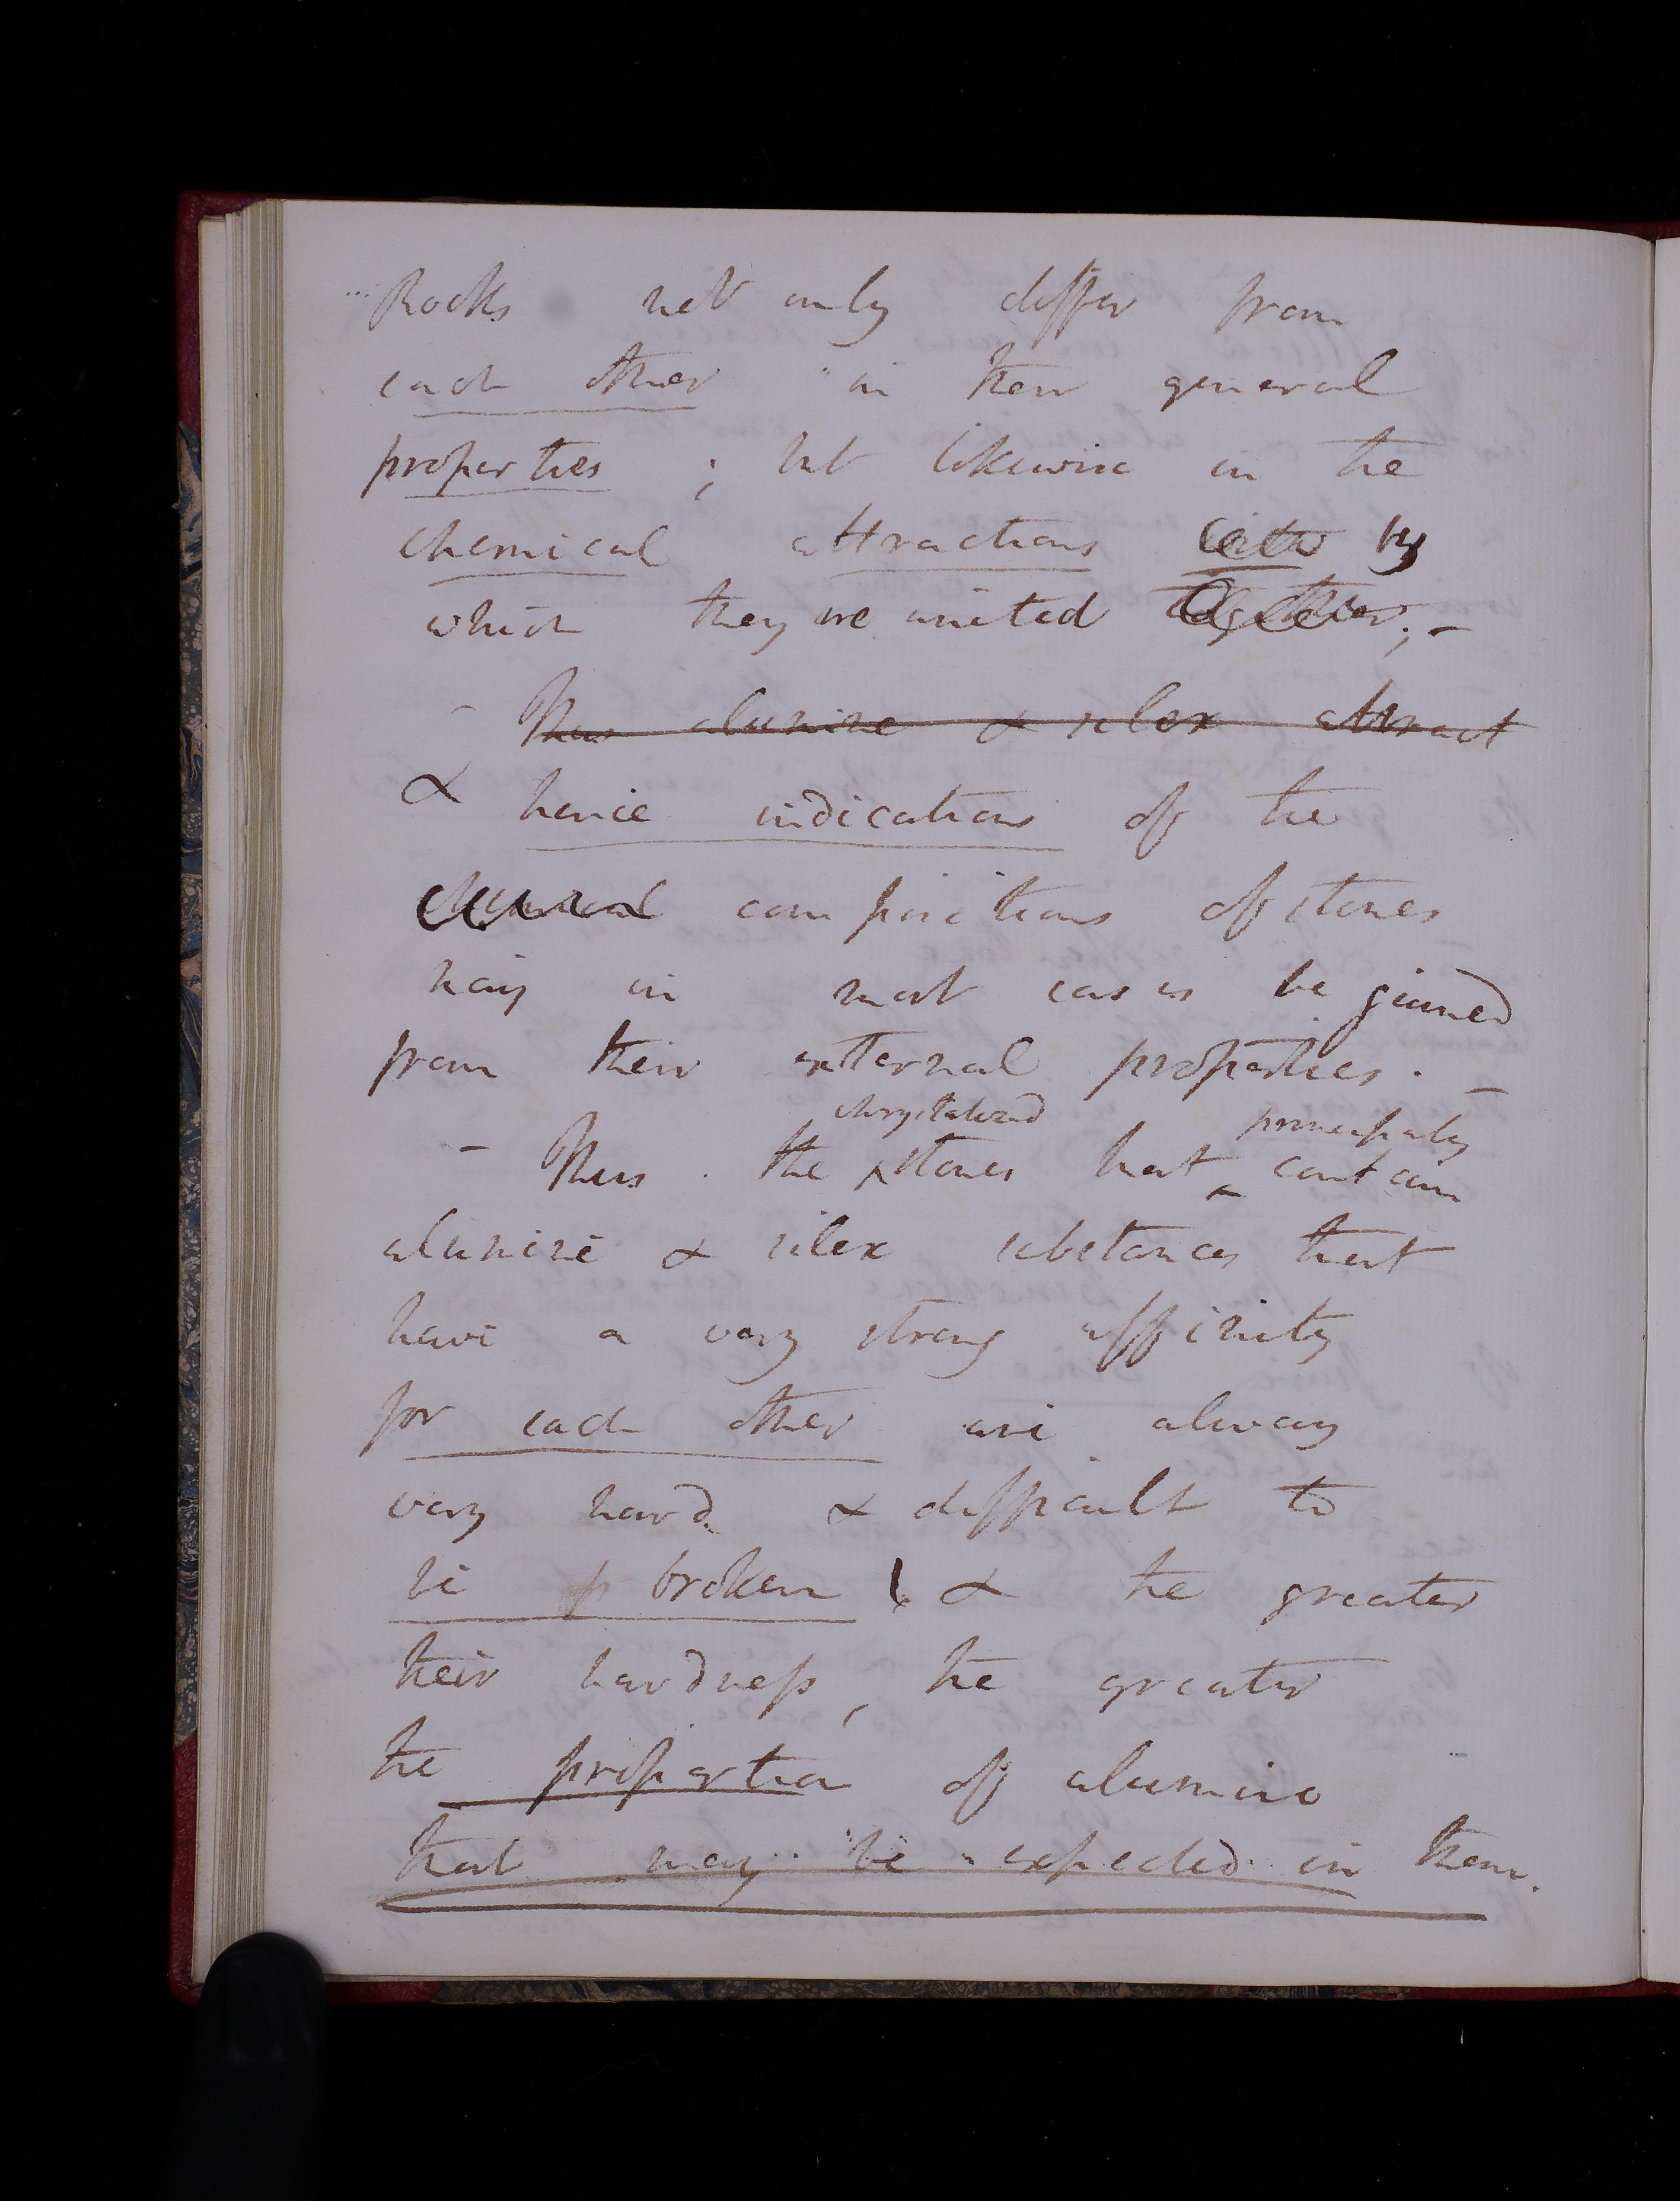 Rocks not only differ from
each other in their general
properties ; but likewise in the
chemical attractions by
which they are united together; –
– Thus alumine & silex attract
& hence indications of the
chemical compositions of stones
may in most cases be gained
from their external properties. –
chrystalized principally
– Thus the stones that contain
alumine & silex substances that
have a very strong affinity
for each other are always
very hard & difficult to
be broken & the greater
their hardness, the greater
the proportion of alumine
that may be expected in them.